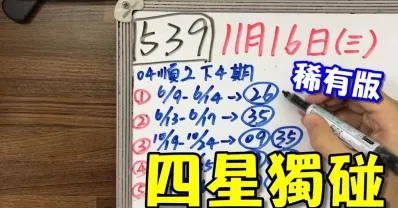 539 11月16日(三)
稀有版
04順2下4期
① 6/9-6/14→26
② 6/13-6/17→35
③ 10/19-10/24→09 35
④
⑤
四星獨碰